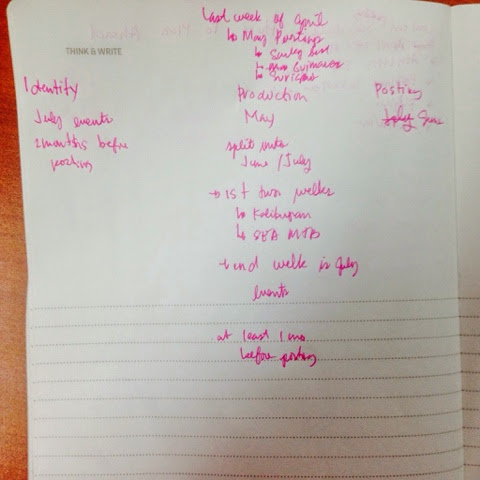 Last week of April
↳ May Postings
THINK & WRITE
Identify
Production
Posting
July events
May
June
2 months before
posting
split into
June / July
→ 1st two weeks
↳ Kalibugan
↳ SEA MTB
→ 2nd week is July
events
at least 1 mo
before posting